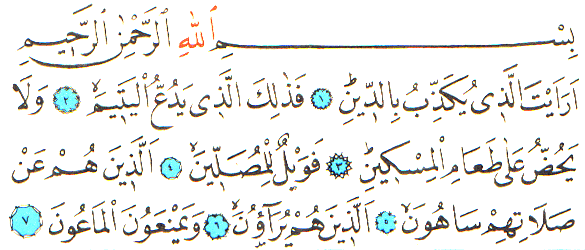 بِسْمِ اللهِ الرَّحْمٰنِ الرَّحِيمِ
اَرَاَيْتَ الَّذِى يُكَذِّبُ بِالدِّينِ ﴿١﴾ فَذٰلِكَ الَّذِى يَدُعُّ الْيَتِيمَ ﴿٢﴾ وَلَا
يَحُضُّ عَلٰى طَعَامِ الْمِسْكِينِ ﴿٣﴾ فَوَيْلٌ لِلْمُصَلِّينَ ﴿٤﴾ اَلَّذِينَ هُمْ عَنْ
صَلَاتِهِمْ سَاهُونَ ﴿٥﴾ اَلَّذِينَ هُمْ يُرَآؤُنَ ﴿٦﴾ وَيَمْنَعُونَ الْمَاعُونَ ﴿٧﴾